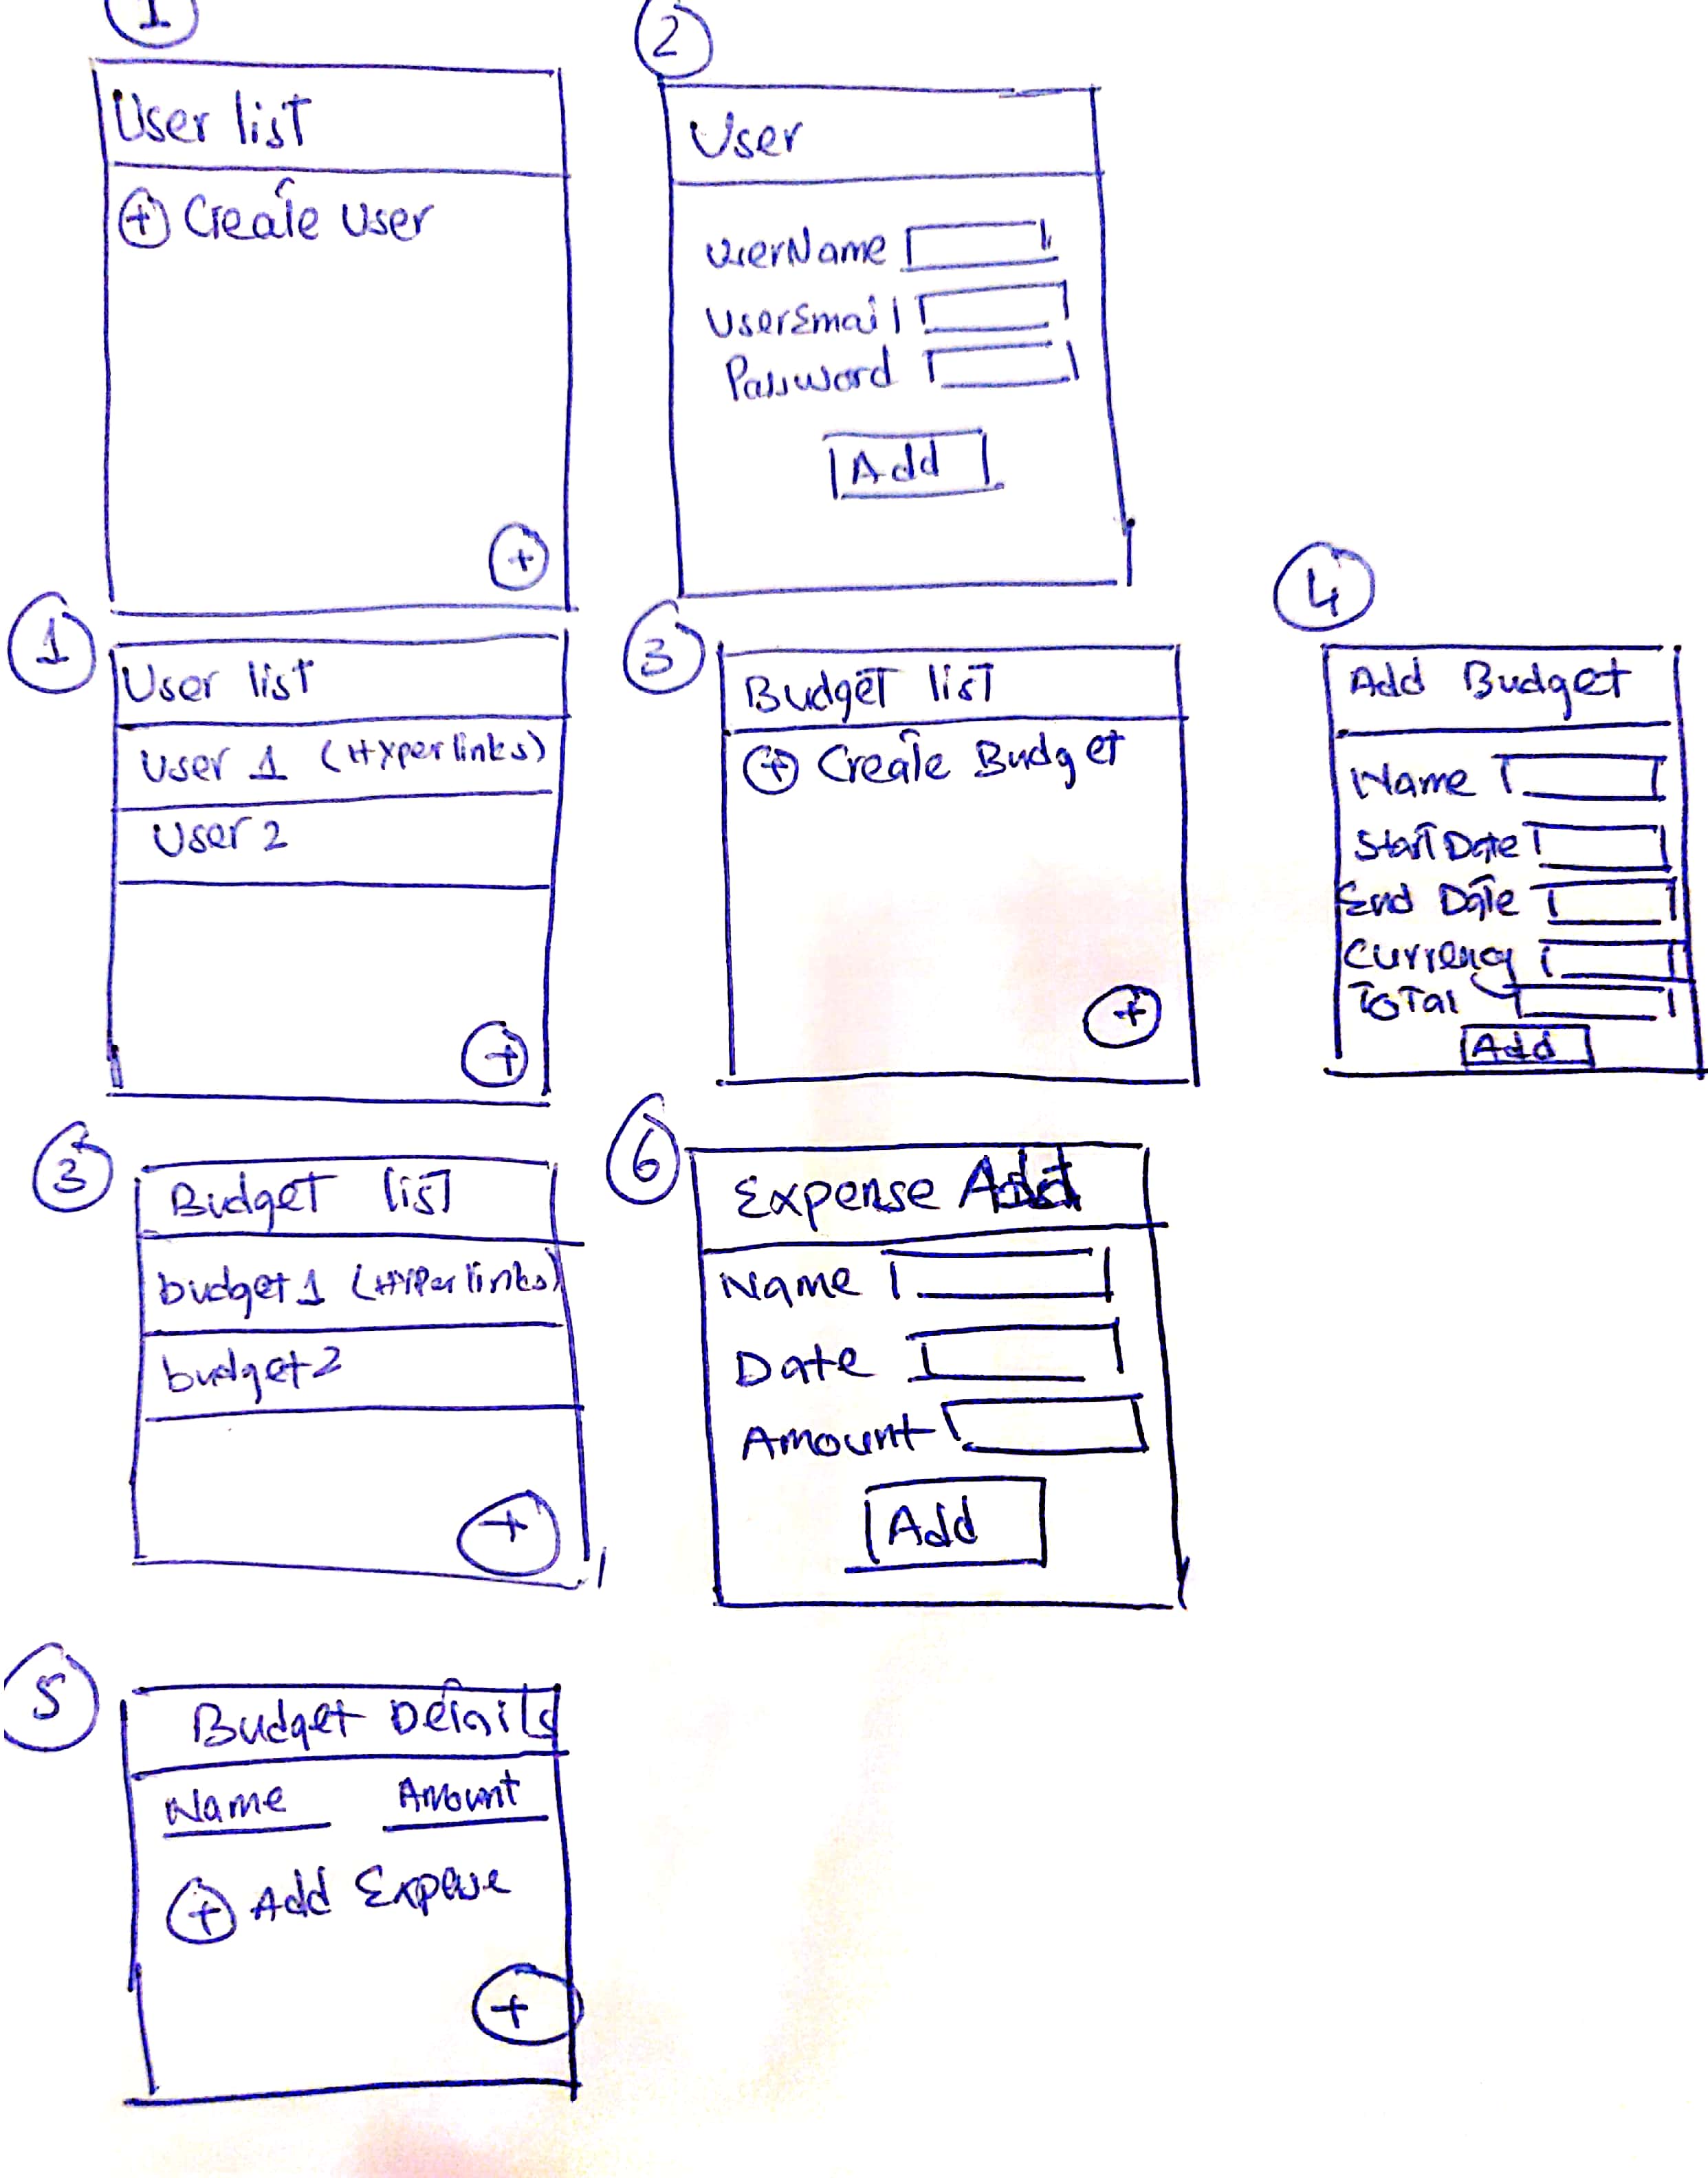 1
User list
+ Create User
+
2
User
UserName
UserEmail
Password
Add
1
User list
User 1 (Hyperlinks)
User 2
+
3
Budget list
+ Create Budget
+
4
Add Budget
Name
Start Date
End Date
Currency
Total
Add
3
Budget list
budget1 (Hyperlinks)
budget2
+
6
Expense Add
Name
Date
Amount
Add
5
Budget Details
Name Amount
+ Add Expense
+